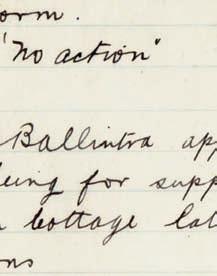 orm.
"No action"
Ballintra app
being for supp
cottage lat
ons